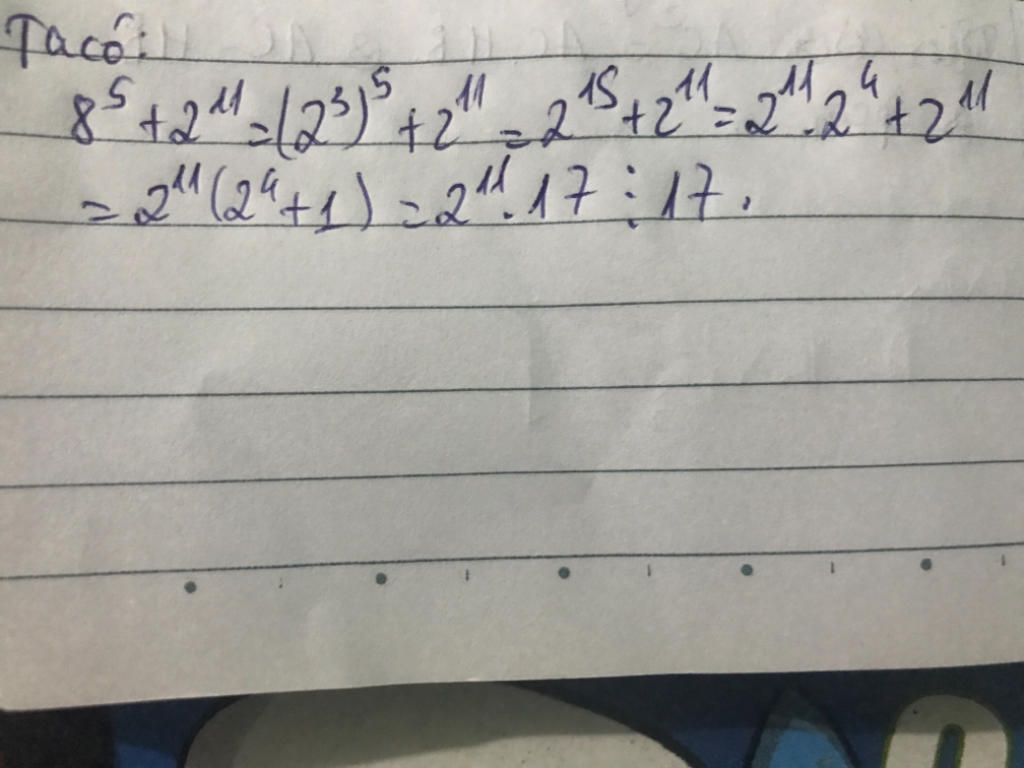 Ta có:
8⁵ + 2¹¹ = (2³)⁵ + 2¹¹ = 2¹⁵ + 2¹¹ = 2¹¹ . 2⁴ + 2¹¹
= 2¹¹ (2⁴ + 1) = 2¹¹ . 17 ⋮ 17 .